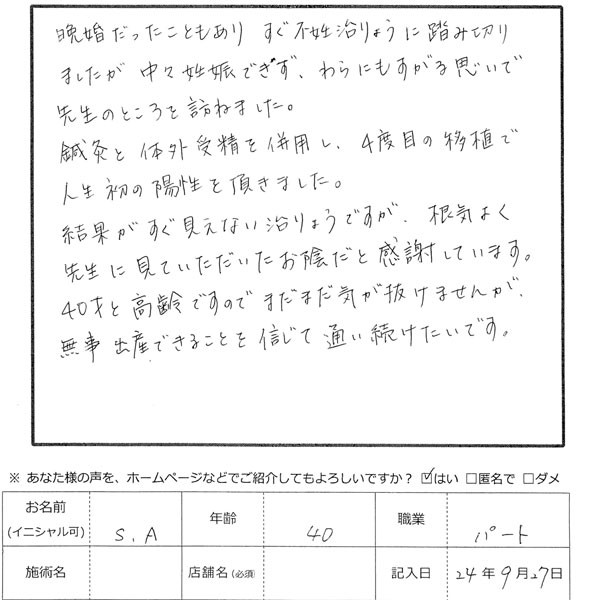 晩婚だったこともあり すぐ不妊治りょうに踏み切り
ましたが 中々妊娠できず、わらにもすがる思いで
先生のところを訪ねました。
鍼灸と体外受精を併用し、4度目の移植で
人生初の陽性を頂きました。
結果がすぐ見えない治りょうですが、根気よく
先生に見ていただいたお陰だと感謝しています。
40才と高齢ですのでまだまだ気が抜けませんが、
無事出産できることを信じて通い続けたいです。
※ あなた様の声を、ホームページなどでご紹介してもよろしいですか? ☑はい □匿名で □ダメ
お名前 (イニシャル可) S.A 年齢 40 職業 パート
施術名 店舗名(必須) 記入日 24年9月27日